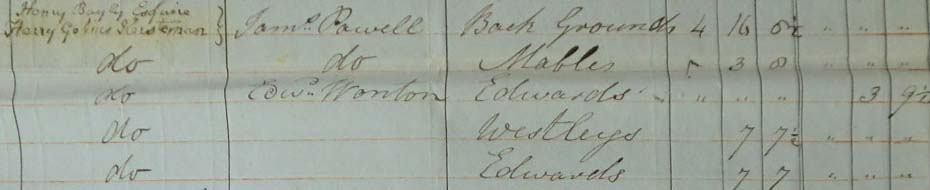 Henry Bayly Esquire
Henry Gobius Kersteman } Jam.s Powell Back Grounds 4 16 6½ " " "
do do Mables 3 8 " " "
do Edw.d Wonton Edwards " " " 3 9½
do Westleys 7 7½ " " "
do Edwards 7 7 " " "